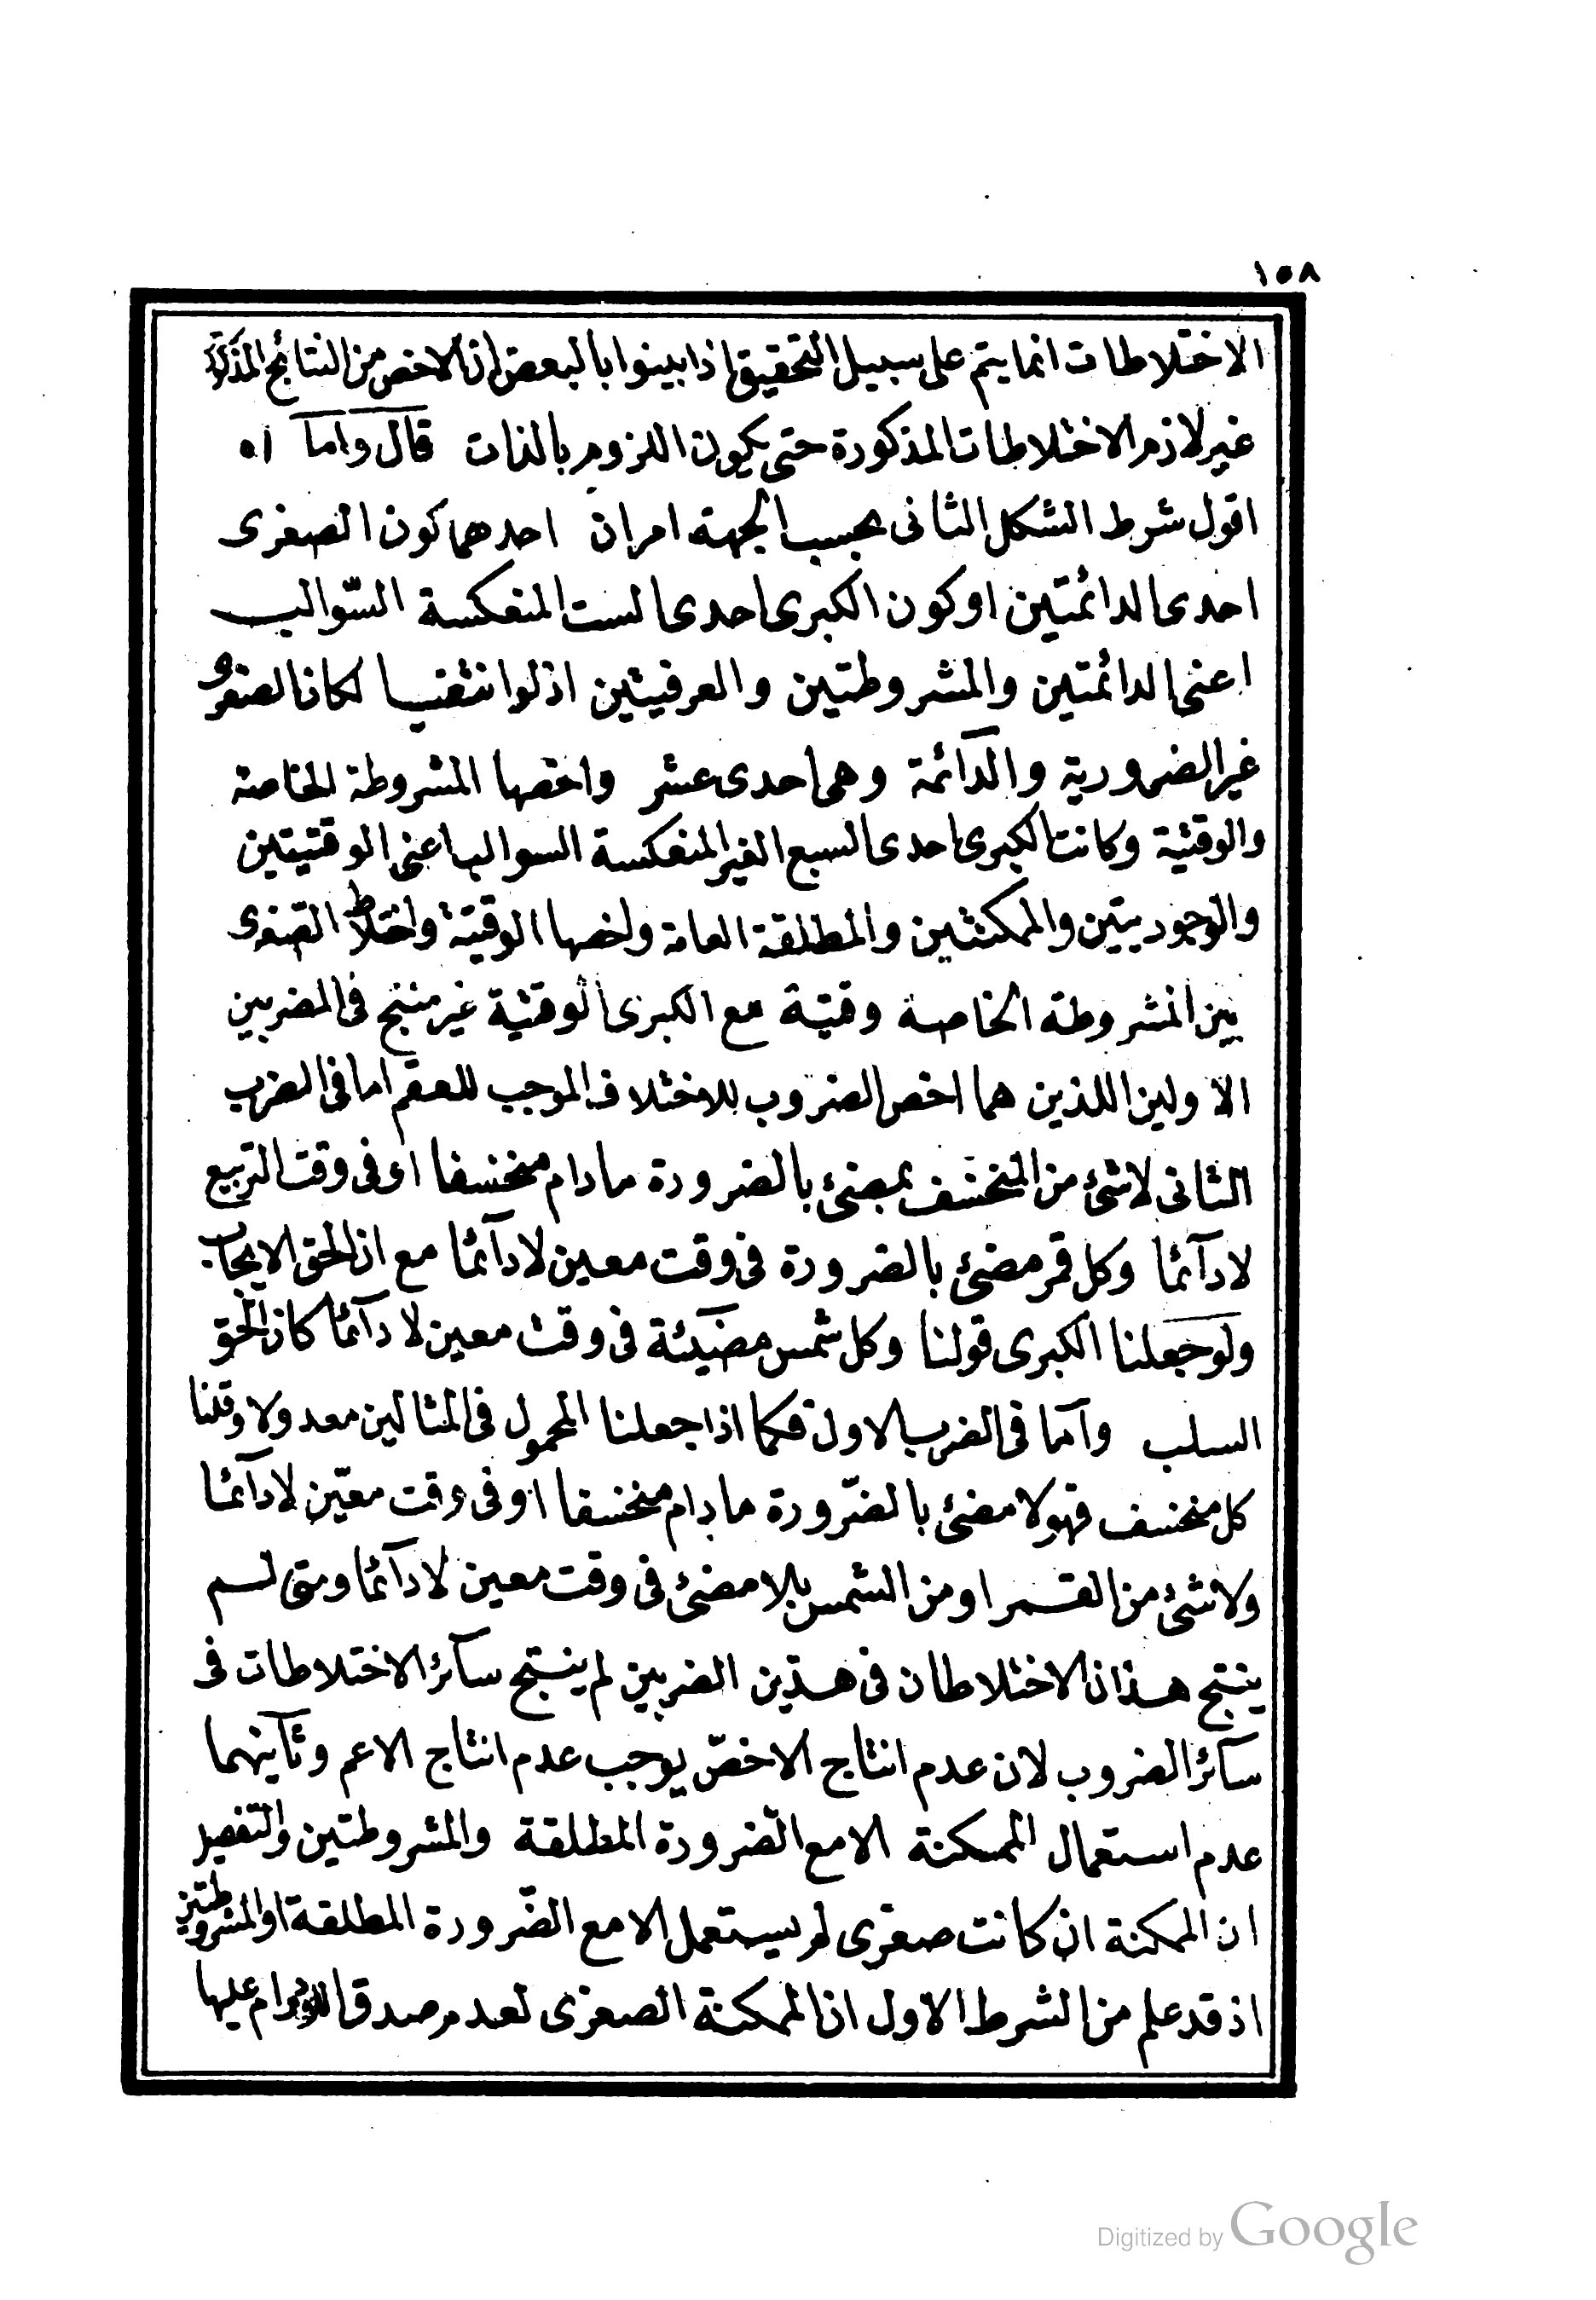 ١٥٨
الاختلاطات انما يتم على سبيل التحقيق اذا بينوا بالبعض ان الاخص من النتائج المذكورة
غير لازم الاختلاطات المذكورة حتى يكون اللزوم بالذات قال واما اه
اقول شرط الشكل الثانى بحسب الجهة امران احدهما كون الصغرى
احدى الدائمتين او كون الكبرى احدى الست المنعكسة السّوالب
اعنى الدائمتين والمشروطتين والعرفيتين اذ لو انتفيا لكان الصغرى
غير الضرورية والدائمة وهى احدى عشر واخصها المشروطة الخاصة
والوقتية وكانت الكبرى احدى السبع الغير المنعكسة السوالب اعنى الوقتيتين
والوجوديتين والممكنتين والمطلقة العامة واخصها الوقتية واختلاط الصغرى
بين المشروطة الخاصة وقتية مع الكبرى الوقتية غير منتج فى الضربين
الاولين اللذين هما اخص الضروب للاختلاف الموجب للعقم اما فى الضرب
الثانى لاشئ من المنخسف بمضئ بالضرورة مادام منخسفا او فى وقت التربيع
لادآئما وكل قمر مضئ بالضرورة فى وقت معين لادآئما مع ان الحق الايجاب
ولو جعلنا الكبرى قولنا وكل شمس مضيئة فى وقت معين لادآئما كان الحق
السلب وآما فى الضرب الاول فكما اذا جعلنا المحمول فى المثالين معدولا وقلنا
كل منخسف فهو لا مضئ بالضّرورة مادام منخسفا او فى وقت معيّن لادآئما
ولاشئ من القمر او من الشمس بلا مضئ فى وقت معين لادآئما ومتى لم
ينتج هذان الاختلاطان فى هذين الضربين لم ينتج سآئر الاختلاطات فى
سآئر الضروب لان عدم انتاج الاخصّ يوجب عدم انتاج الاعم وثآنيهما
عدم استعمال الممكنة الا مع الضرورة المطلقة والمشروطتين والتفصيل
ان الممكنة ان كانت صغرى لم يستعمل الا مع الضّرورة المطلقة او المشروطتين
اذ قد علم من الشرط الاول ان الممكنة الصغرى لعدم صدق الدوام عليها
Digitized by Google